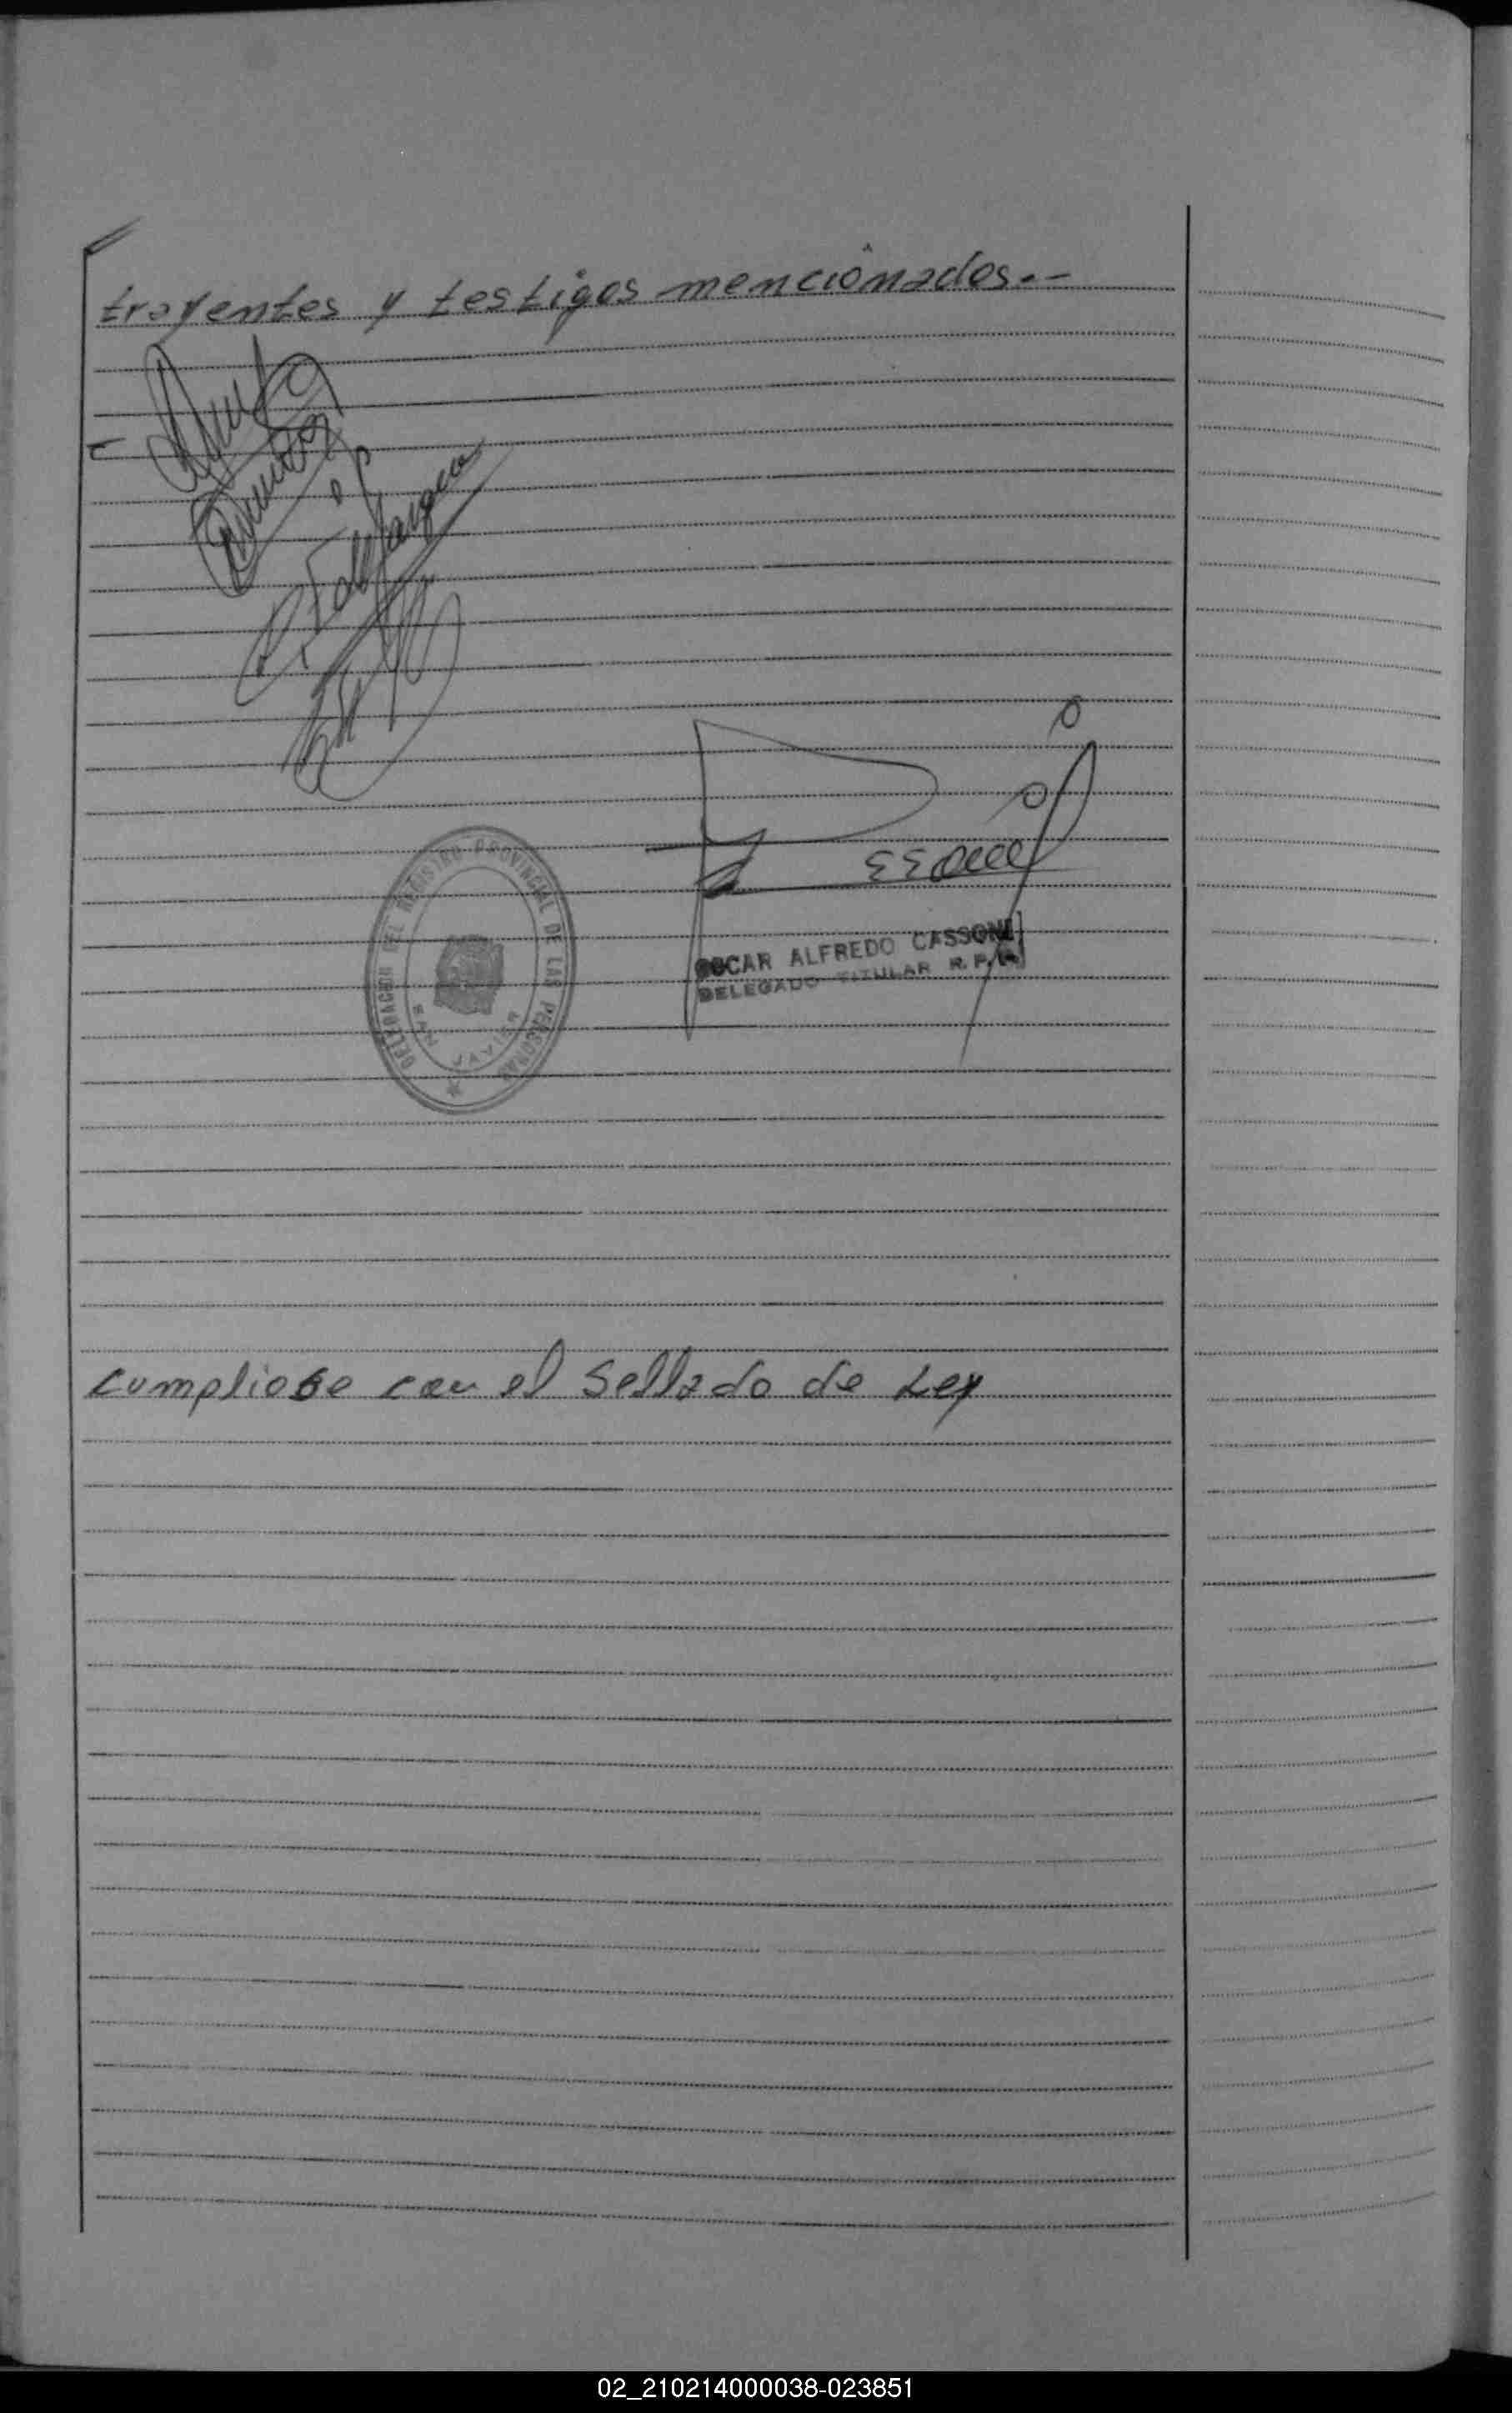 trayentes y testigos mencionados.-
DELEGACION DEL REGISTRO PROVINCIAL DE LAS PERSONAS
SAN JAVIER
OSCAR ALFREDO CASSONE
DELEGADO TITULAR R.P.P.
cumpliose con el Sellado de Ley
02_210214000038-023851